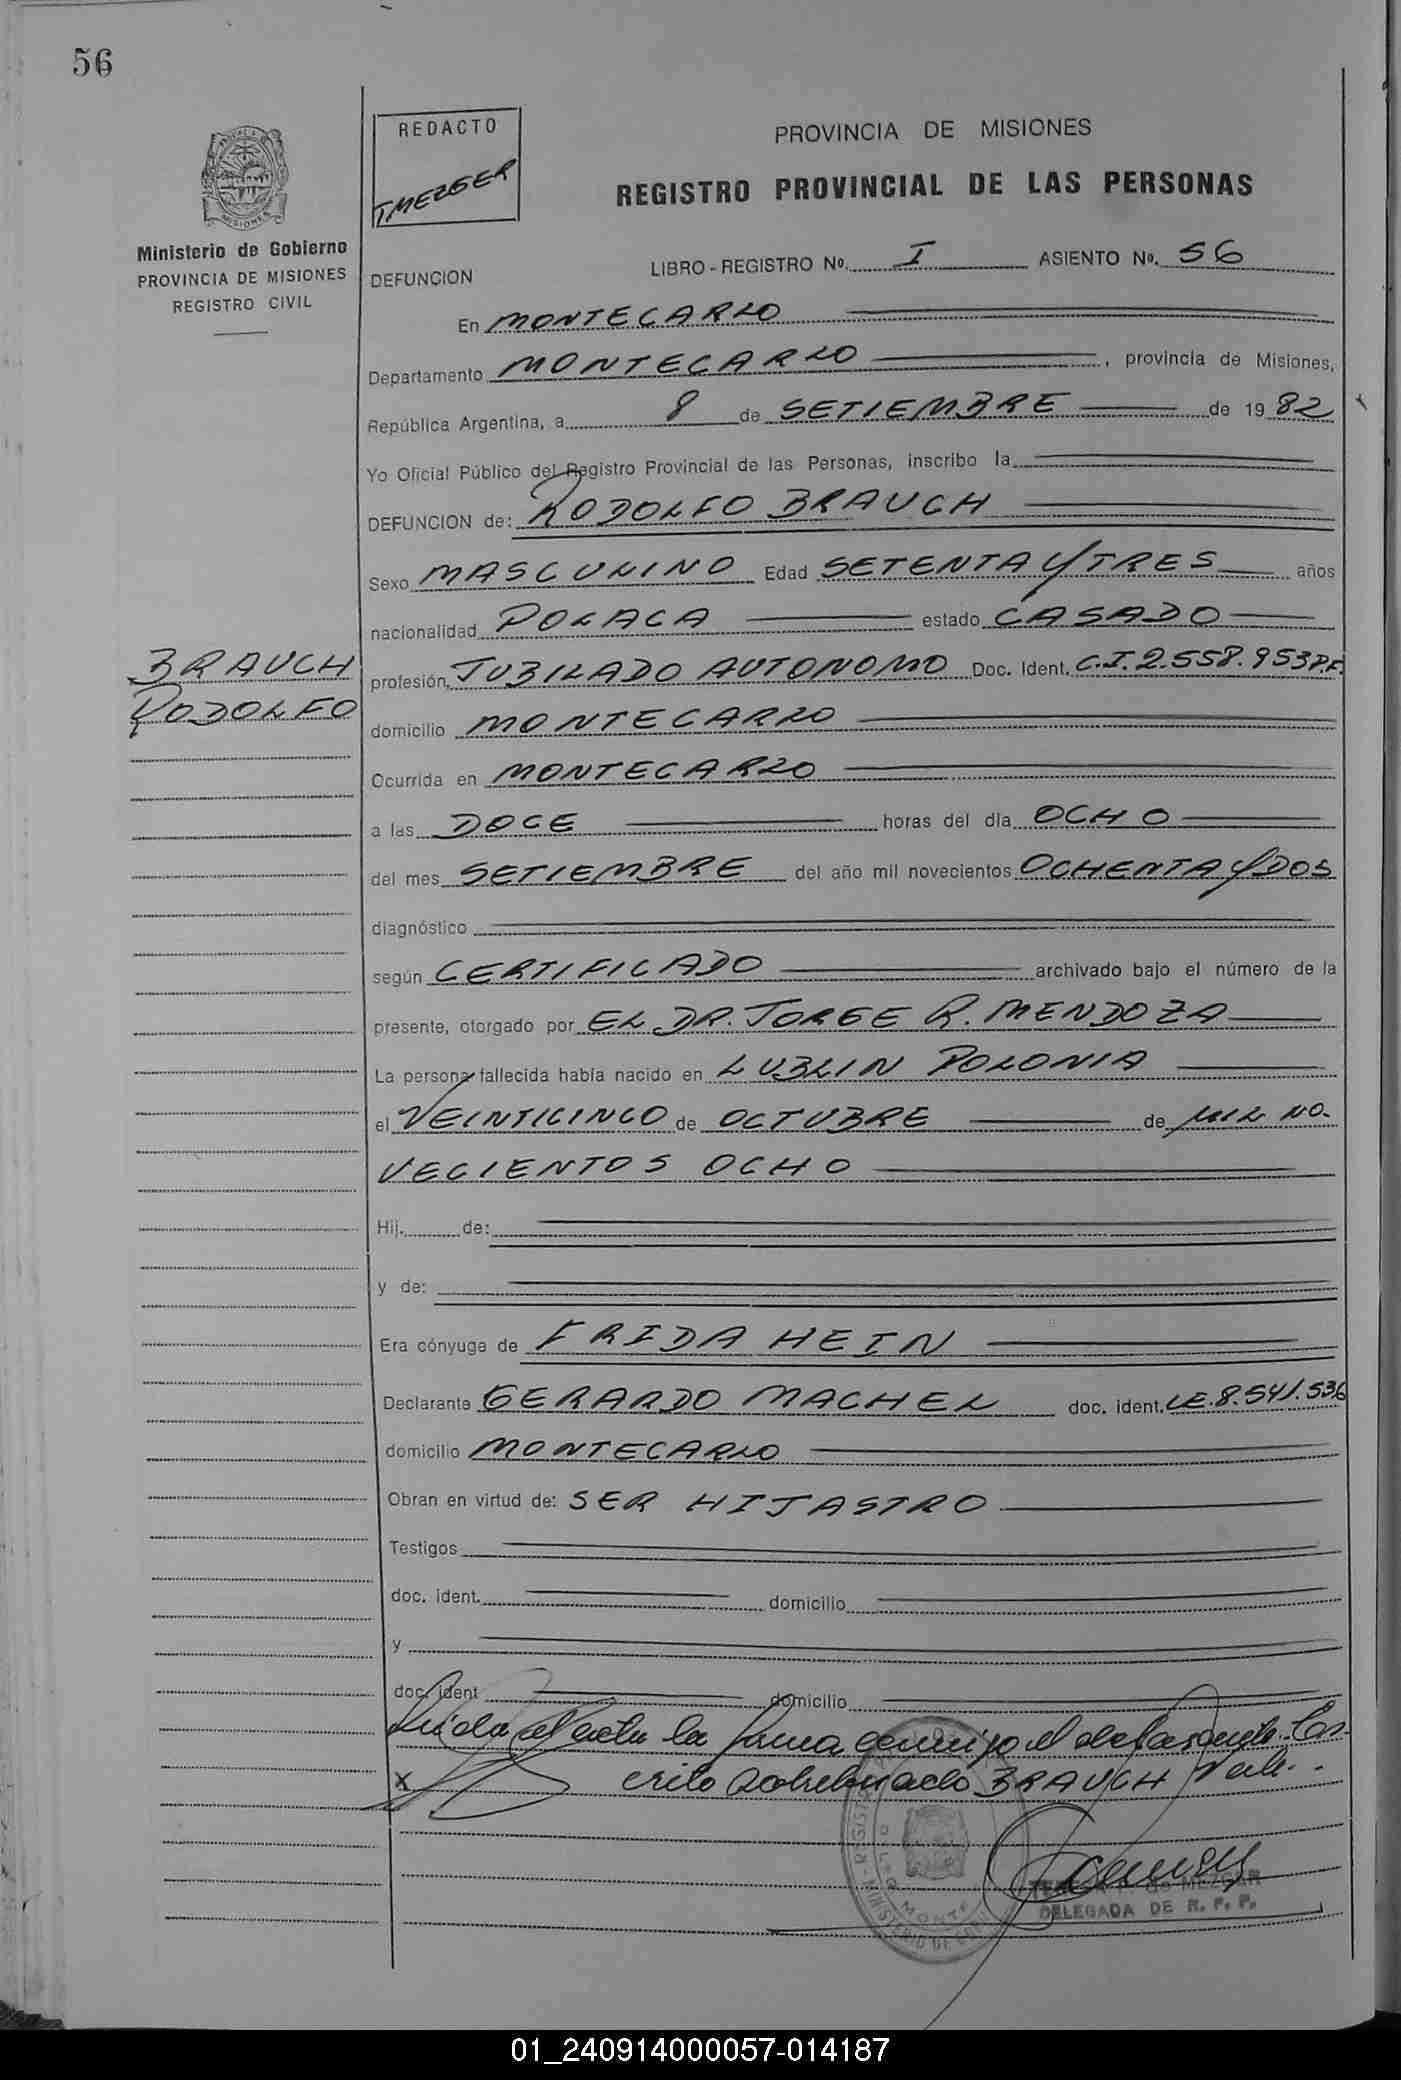 56
REDACTO
T MEZGER
PROVINCIA DE MISIONES
REGISTRO PROVINCIAL DE LAS PERSONAS
MISIONES
Ministerio de Gobierno
PROVINCIA DE MISIONES
REGISTRO CIVIL
DEFUNCION LIBRO - REGISTRO Nº. I ASIENTO Nº. 56
En MONTECARLO
Departamento MONTECARLO, provincia de Misiones,
República Argentina, a 8 de SETIEMBRE de 1982
Yo Oficial Público del Registro Provincial de las Personas, inscribo la
DEFUNCION de: RODOLFO BRAUCH
Sexo MASCULINO Edad SETENTA Y TRES años
nacionalidad POLACA estado CASADO
BRAUCH
RODOLFO
profesión, JUBILADO AUTONOMO Doc. Ident. C.I. 2.558.953 P.F.
domicilio MONTECARLO
Ocurrida en MONTECARLO
a las DOCE horas del día OCHO
del mes SETIEMBRE del año mil novecientos OCHENTA Y DOS
diagnóstico
según CERTIFICADO archivado bajo el número de la
presente, otorgado por EL DR. JORGE R. MENDOZA
La persona fallecida había nacido en LUBLIN POLONIA
el VEINTICINCO de OCTUBRE de MIL NO-
VECIENTOS OCHO
Hij. de:
y de:
Era cónyuge de FRIDA HEIN
Declarante GERARDO MACHEL doc. ident. LE. 8.541.536
domicilio MONTECARLO
Obran en virtud de: SER HIJASTRO
Testigos
doc. ident. domicilio
y
doc. ident domicilio
Leida el acta la firma conmigo el declarante. Es-
x crito sobrebrrado BRAUCH Vale.
TERESA F. de MEZGER
DELEGADA DE R. P. P.
01_240914000057-014187